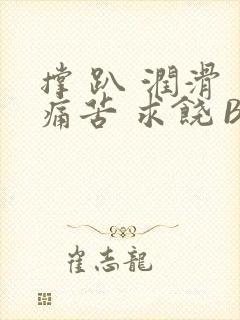 撑 趴 潤滑
痛苦 求饒 B
崔志龍